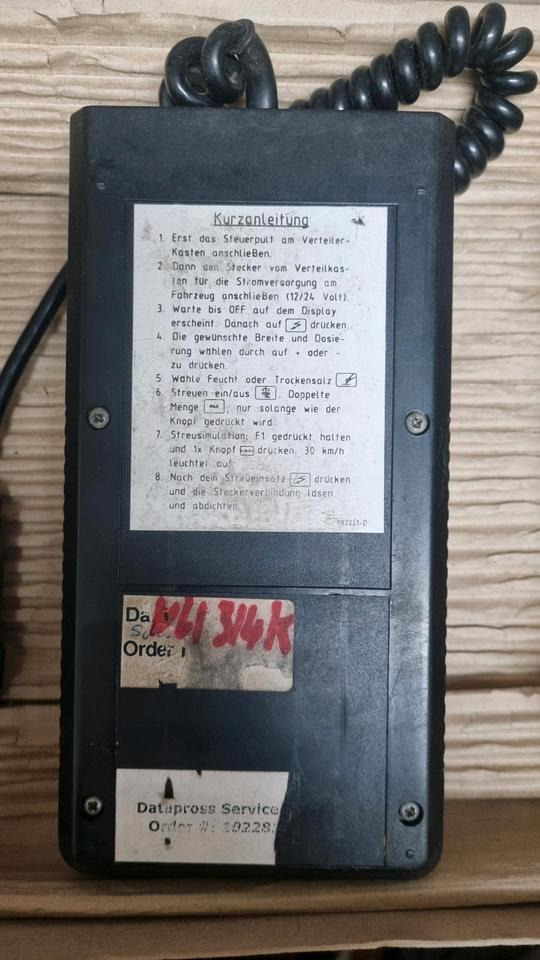 Kurzanleitung
1. Erst das Steuerpult am Verteiler-
Kasten anschließen.
2. Dann den Stecker vom Verteilkas-
ten für die Stromversorgung am
Fahrzeug anschließen (12/24 Volt).
3. Warte bis OFF auf dem Display
erscheint. Danach auf drücken.
4. Die gewünschte Breite und Dosie-
rung wählen durch auf + oder -
zu drücken.
5 Wähle Feucht oder Trockensalz
6. Streuen ein/aus . Doppelte
Menge MAX , nur solange wie der
Knopf gedrückt wird.
7. Streusimulation: F1 gedrückt halten
und 1x Knopf drücken. 30 km/h
leuchtet auf
8. Nach dem Streueinsatz drücken
und die Steckerverbindung lösen
und abdichten.
Da
314K
Order
Datapross Service
Order #: